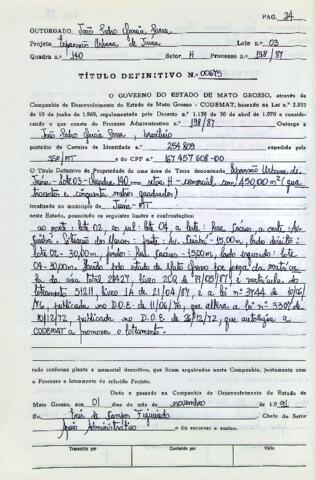 PAG. 24
OUTORGADO João Pedro Garcia Serra
Projeto Expansão Urbana de Juína Lote n.º 03
Quadra n.º 140 Setor H Processo n.º 198/87
TÍTULO DEFINITIVO N.º 00675
O GOVERNO DO ESTADO DE MATO GROSSO, através da
Companhia de Desenvolvimento do Estado de Mato Grosso - CODEMAT, baseado na Lei n.º 2.933
de 10 de junho de 1.969, regulamentada pelo Decreto n.º 1.138 de 30 de abril de 1.970 e considerando
o que consta do Processo Administrativo n.º 198/87 Outorga a
João Pedro Garcia Serra, brasileiro
portador da Carteira de Identidade n.º 254809 expedida pela
SSP/MT e do CPF n.º 167 457 608-00
O Título Definitivo de Propriedade de uma área de Terra denominada Expansão Urbana de
Juína - Lote 03 - Quadra 140 - setor H - comercial, com 450,00m² (quatrocentos
e cinquenta metros quadrados)
localizada no município de Juína - MT
neste Estado, possuindo os seguintes limites e confrontações:
ao norte: lote 02, ao sul: lote 04, a leste: Rua, a oeste: Av.
frente: Av. Cuiabá - 15,00m, lado direito:
lote 02 - 30,00m, fundo: Rua - 15,00m, lado esquerdo: lote
04 - 30,00m. pelo estado de Mato Grosso por força da matrícula
da área total, livro 2CQ de e matrícula do
loteamento 51211, livro 1A de 21/04/87, e a lei nº 3744 de
publicada no D.O.E. de 11/06/76, que altera a lei nº 3307 de
10/12/72, publicada no D.O.E. de 26/12/72, que autoriza a
CODEMAT a promover o loteamento.
tudo conforme planta e memorial descritivo, que ficam arquivados nesta Companhia, juntamente com
o Processo e loteamento do referido Projeto.
Dado e passado na Companhia de Desenvolvimento do Estado de
Mato Grosso, aos 01 dias do mês de novembro de 1991
Eu, Inês de Campos Figueiredo Chefe do Setor
Apoio Administrativo o fiz escrever e assino.
Transcrito por Conferido por Visto